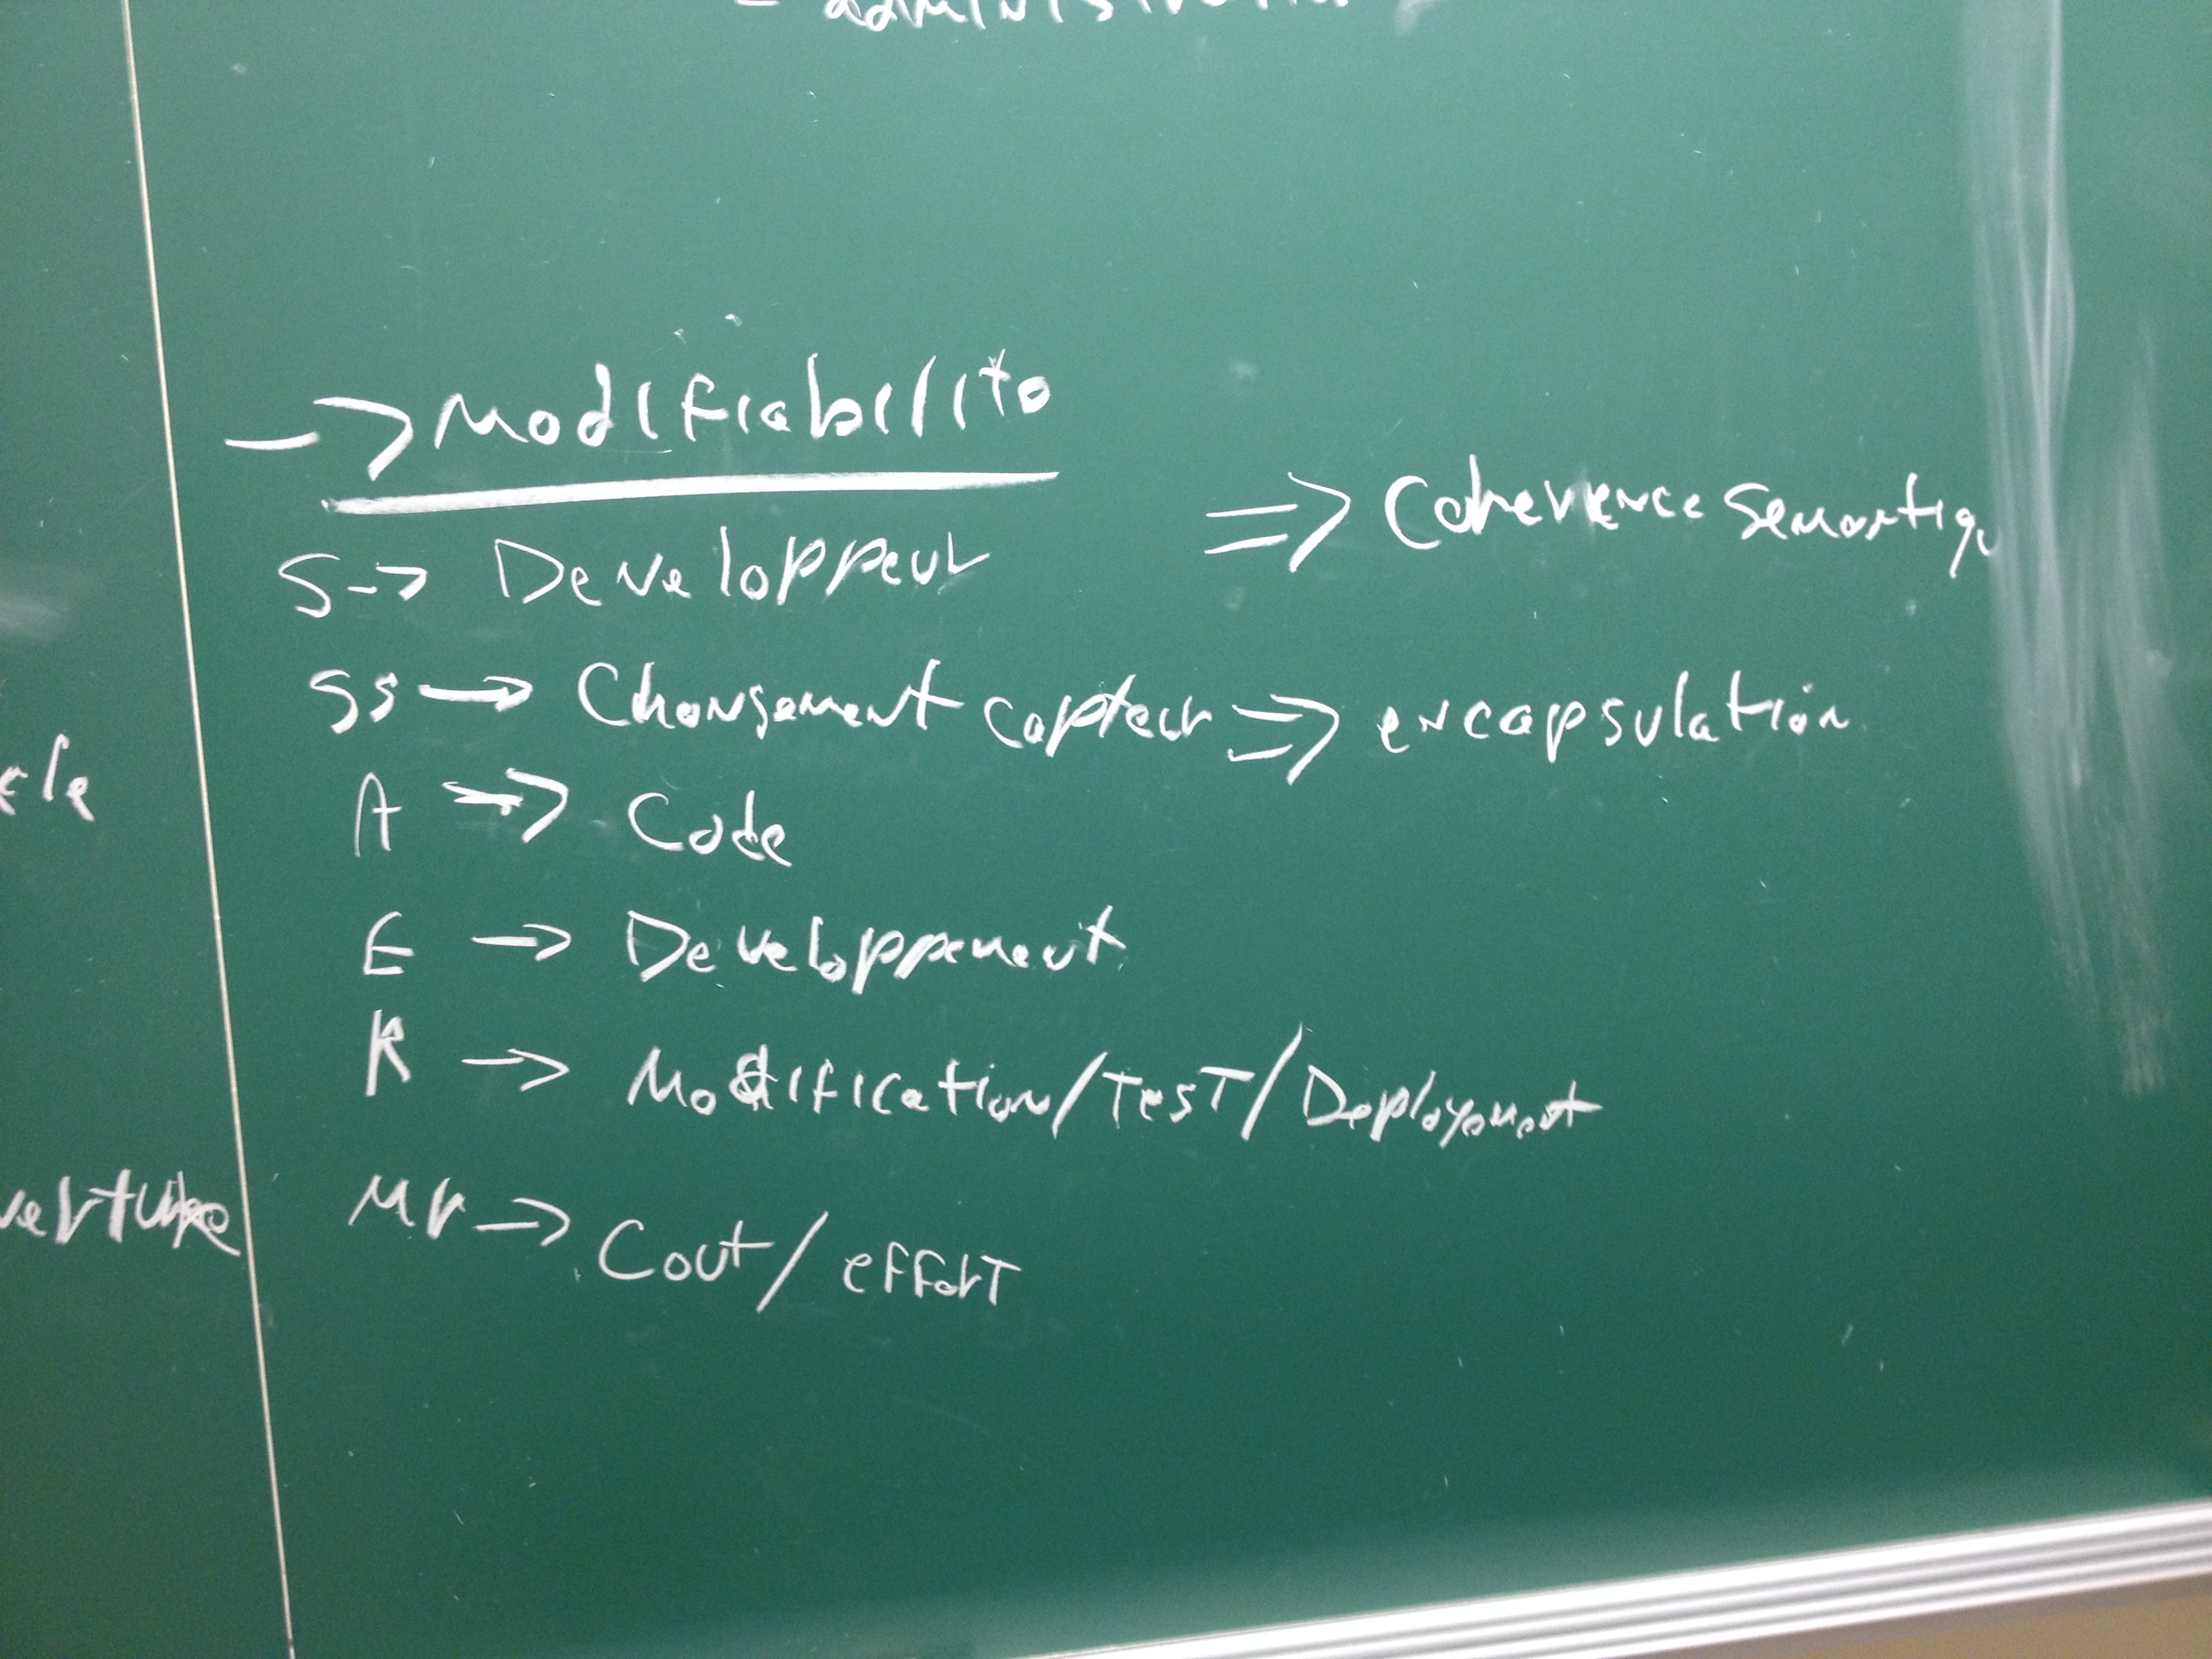 -> Modifiabilité
S -> Developpeur => Coherence Semantiqu
SS -> Changement capteur => encapsulation
A -> Code
E -> Developpement
R -> Modification/Test/Deployement
Mr -> Cout/effort